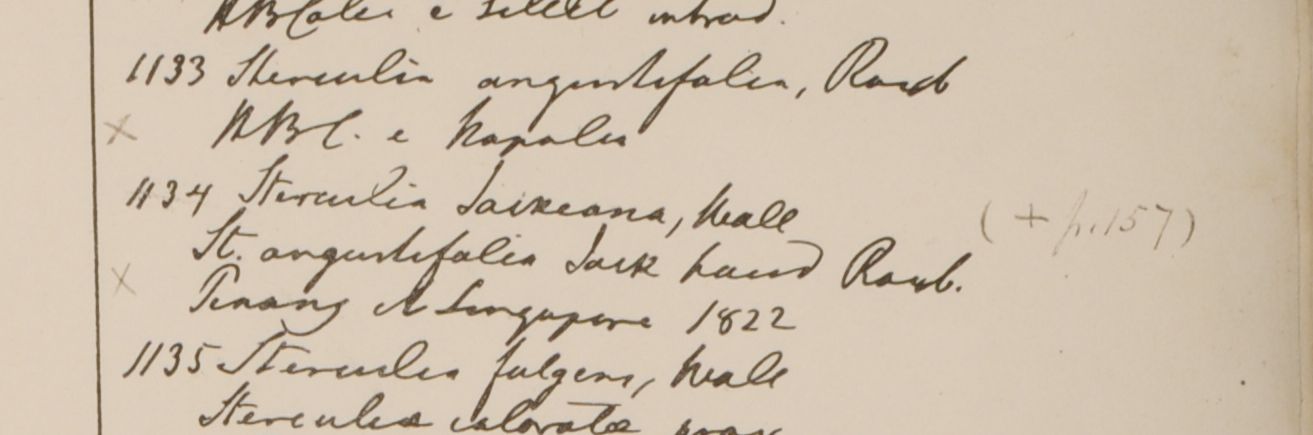 HBCalc. e Silhet introd.
1133 Sterculia angustifolia, Roxb
x HBC. e Napalia
1134 Sterculia Jackeana, Wall (+ p. 157)
St. angustifolia Jack haud Roxb.
x Penang et Singapore 1822
1135 Sterculia fulgens, Wall
Sterculia colorata